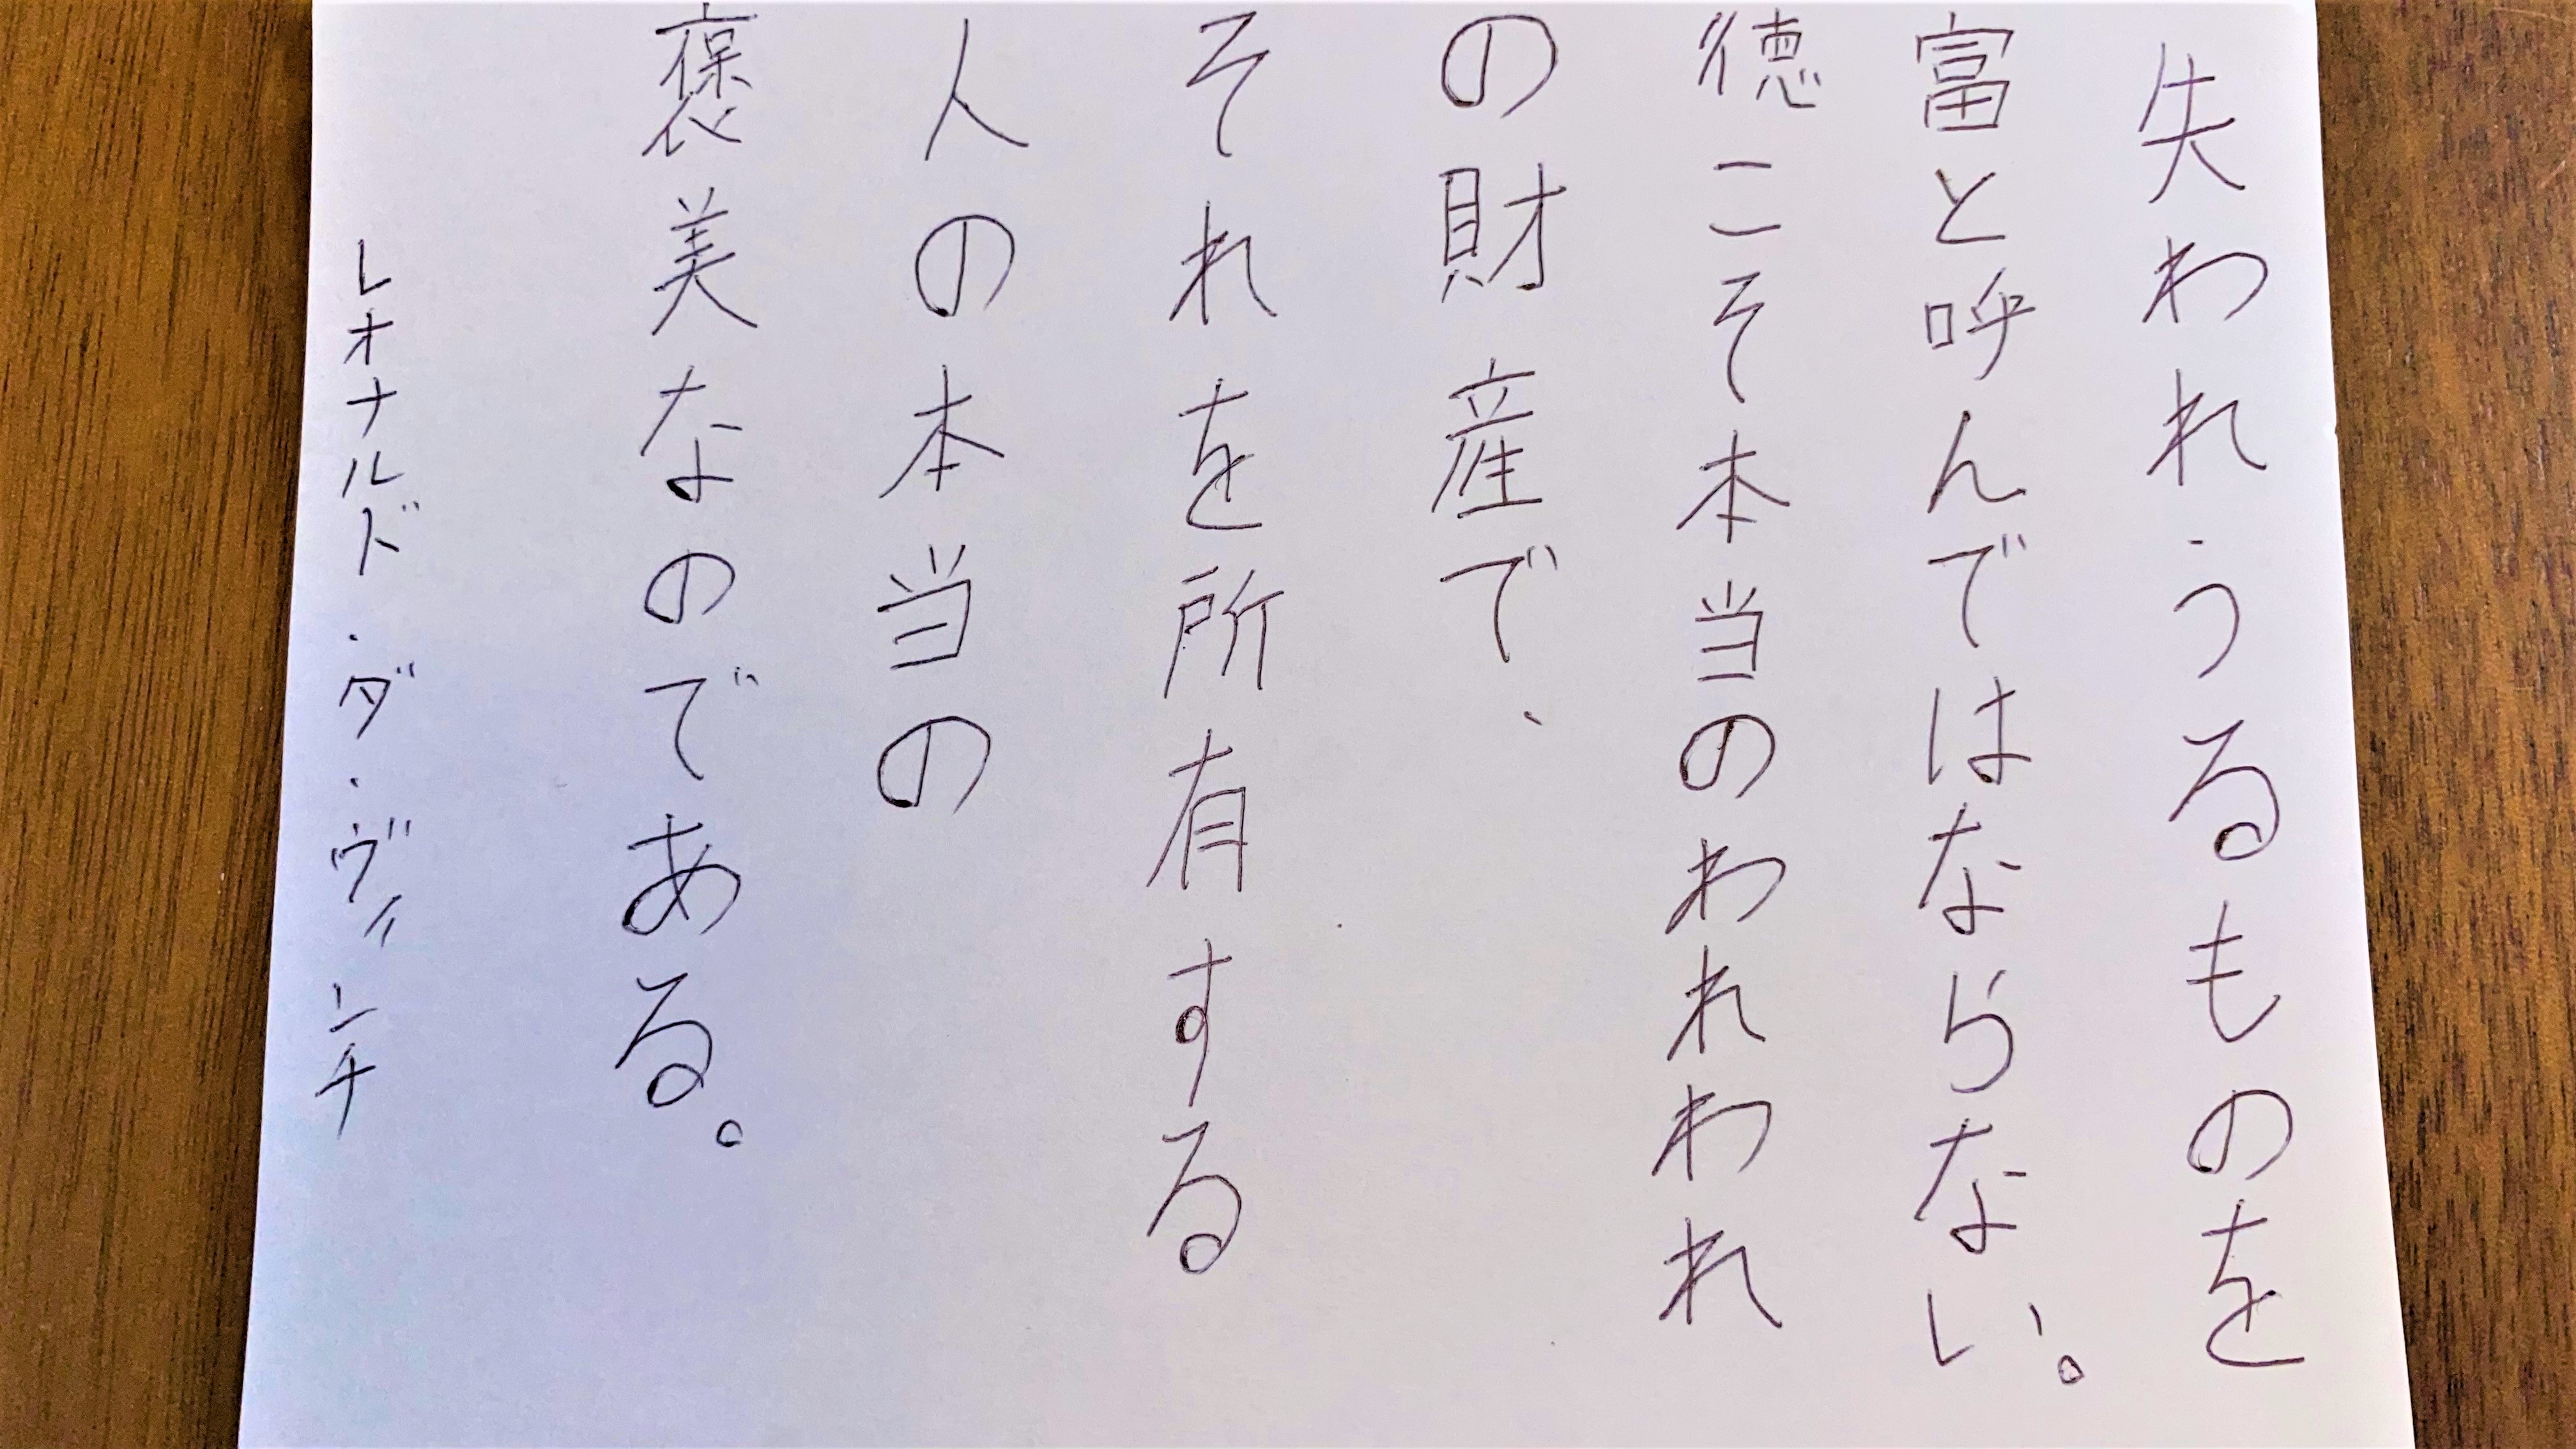 失われうるものを
富と呼んではならない。
徳こそ本当のわれわれ
の財産で、
それを所有する
人の本当の
褒美なのである。
レオナルド・ダ・ヴィンチ